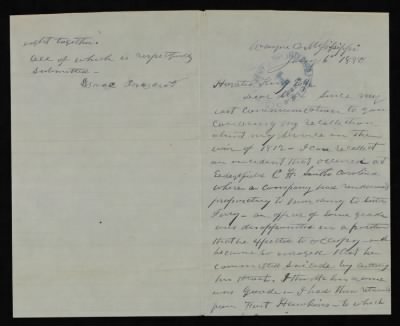 Wayne Co Mississippi
May 6 1880
Horatio King Esqr
Dear Sir Since my
last communication to you
concerning my recollection
about my service in the
war of 1812 - I can recollect
an incident that occured at
Edgefield C. H. South Carolina
where a company had rendezvoused
preparatory to marching to
Ferry - an officer of some grade
was disappointed in a position
that he expected to occupy - and
became so enraged that he
committed suicide by cutting
his throat. I think his name
was Goode - I had then returned
from Fort Hawkins - to which
eight together.
All of which is respectfully
submitted -